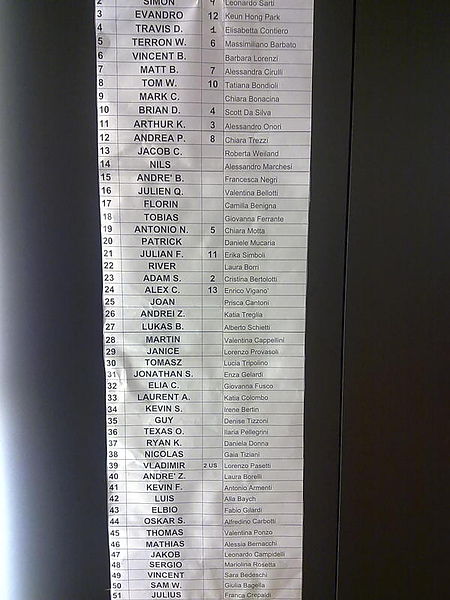 2 SIMON 9 Leonardo Sarti
3 EVANDRO 12 Keun Hong Park
4 TRAVIS D. 1 Elisabetta Contiero
5 TERRON W. 6 Massimiliano Barbato
6 VINCENT B. Barbara Lorenzi
7 MATT B. 7 Alessandra Cirulli
8 TOM W. 10 Tatiana Bondioli
9 MARK C. Chiara Bonacina
10 BRIAN D. 4 Scott Da Silva
11 ARTHUR K. 3 Alessandro Onori
12 ANDREA P. 8 Chiara Trezzi
13 JACOB C. Roberta Weiland
14 NILS Alessandro Marchesi
15 ANDRE' B. Francesca Negri
16 JULIEN Q. Valentina Bellotti
17 FLORIN Camilla Benigna
18 TOBIAS Giovanna Ferrante
19 ANTONIO N. 5 Chiara Motta
20 PATRICK Daniele Mucaria
21 JULIAN F. 11 Erika Simboli
22 RIVER Laura Borri
23 ADAM S. 2 Cristina Bertolotti
24 ALEX C. 13 Enrico Vigano'
25 JOAN Prisca Cantoni
26 ANDREI Z. Katia Treglia
27 LUKAS B. Alberto Schietti
28 MARTIN Valentina Cappellini
29 JANICE Lorenzo Provasoli
30 TOMASZ Lucia Tripolino
31 JONATHAN S. Enza Gelardi
32 ELIA C. Giovanna Fusco
33 LAURENT A. Katia Colombo
34 KEVIN S. Irene Bertin
35 GUY Denise Tizzoni
36 TEXAS O. Ilaria Pellegrini
37 RYAN K. Daniela Donna
38 NICOLAS Gaia Tiziani
39 VLADIMIR 2 US Lorenzo Pasetti
40 ANDRE' Z. Laura Borelli
41 KEVIN F. Antonio Armenti
42 LUIS Alla Baych
43 ELBIO Fabio Gilardi
44 OSKAR S. Alfredino Carbotti
45 THOMAS Valentina Ponzo
46 MATHIAS Alessia Bernacchi
47 JAKOB Leonardo Campidelli
48 SERGIO Mariolina Rosetta
49 VINCENT Sara Bedeschi
50 SAM W. Giulia Bagella
51 JULIUS Franca Crepaldi